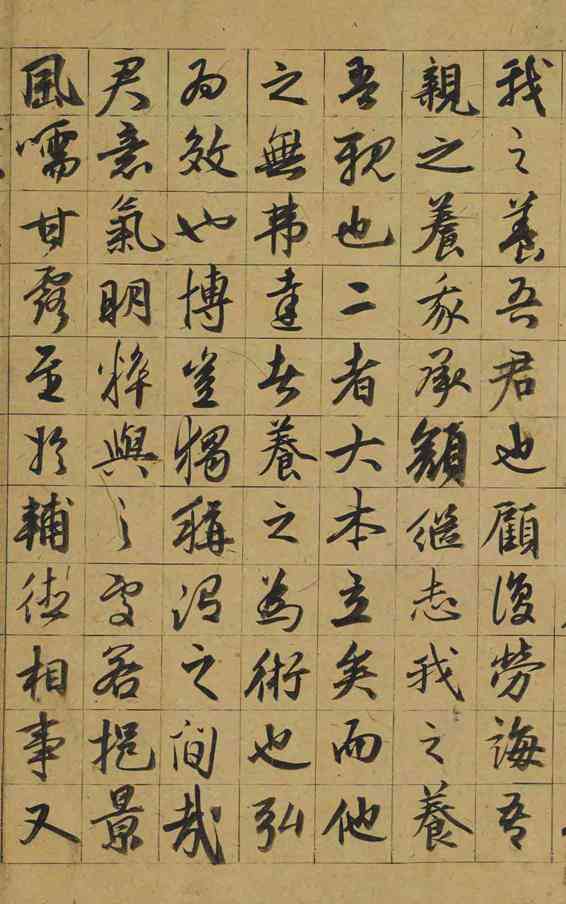 我之養吾君也顧復勞誨吾
親之養我承顏繼志我之養
吾親也二者大本立矣而他
之無達者養之為術也弘
為效也博豈獨稱謂之間哉
君意氣明粹與之處若挹景
風嚅甘露至於輔德相事又